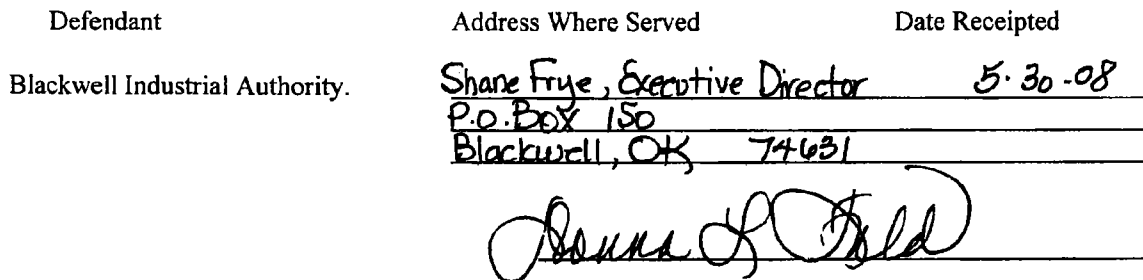 Defendant Address Where Served Date Receipted
Blackwell Industrial Authority. Shane Frye, Executive Director 5-30-08
P.O. Box 150
Blackwell, OK 74631
Donna L